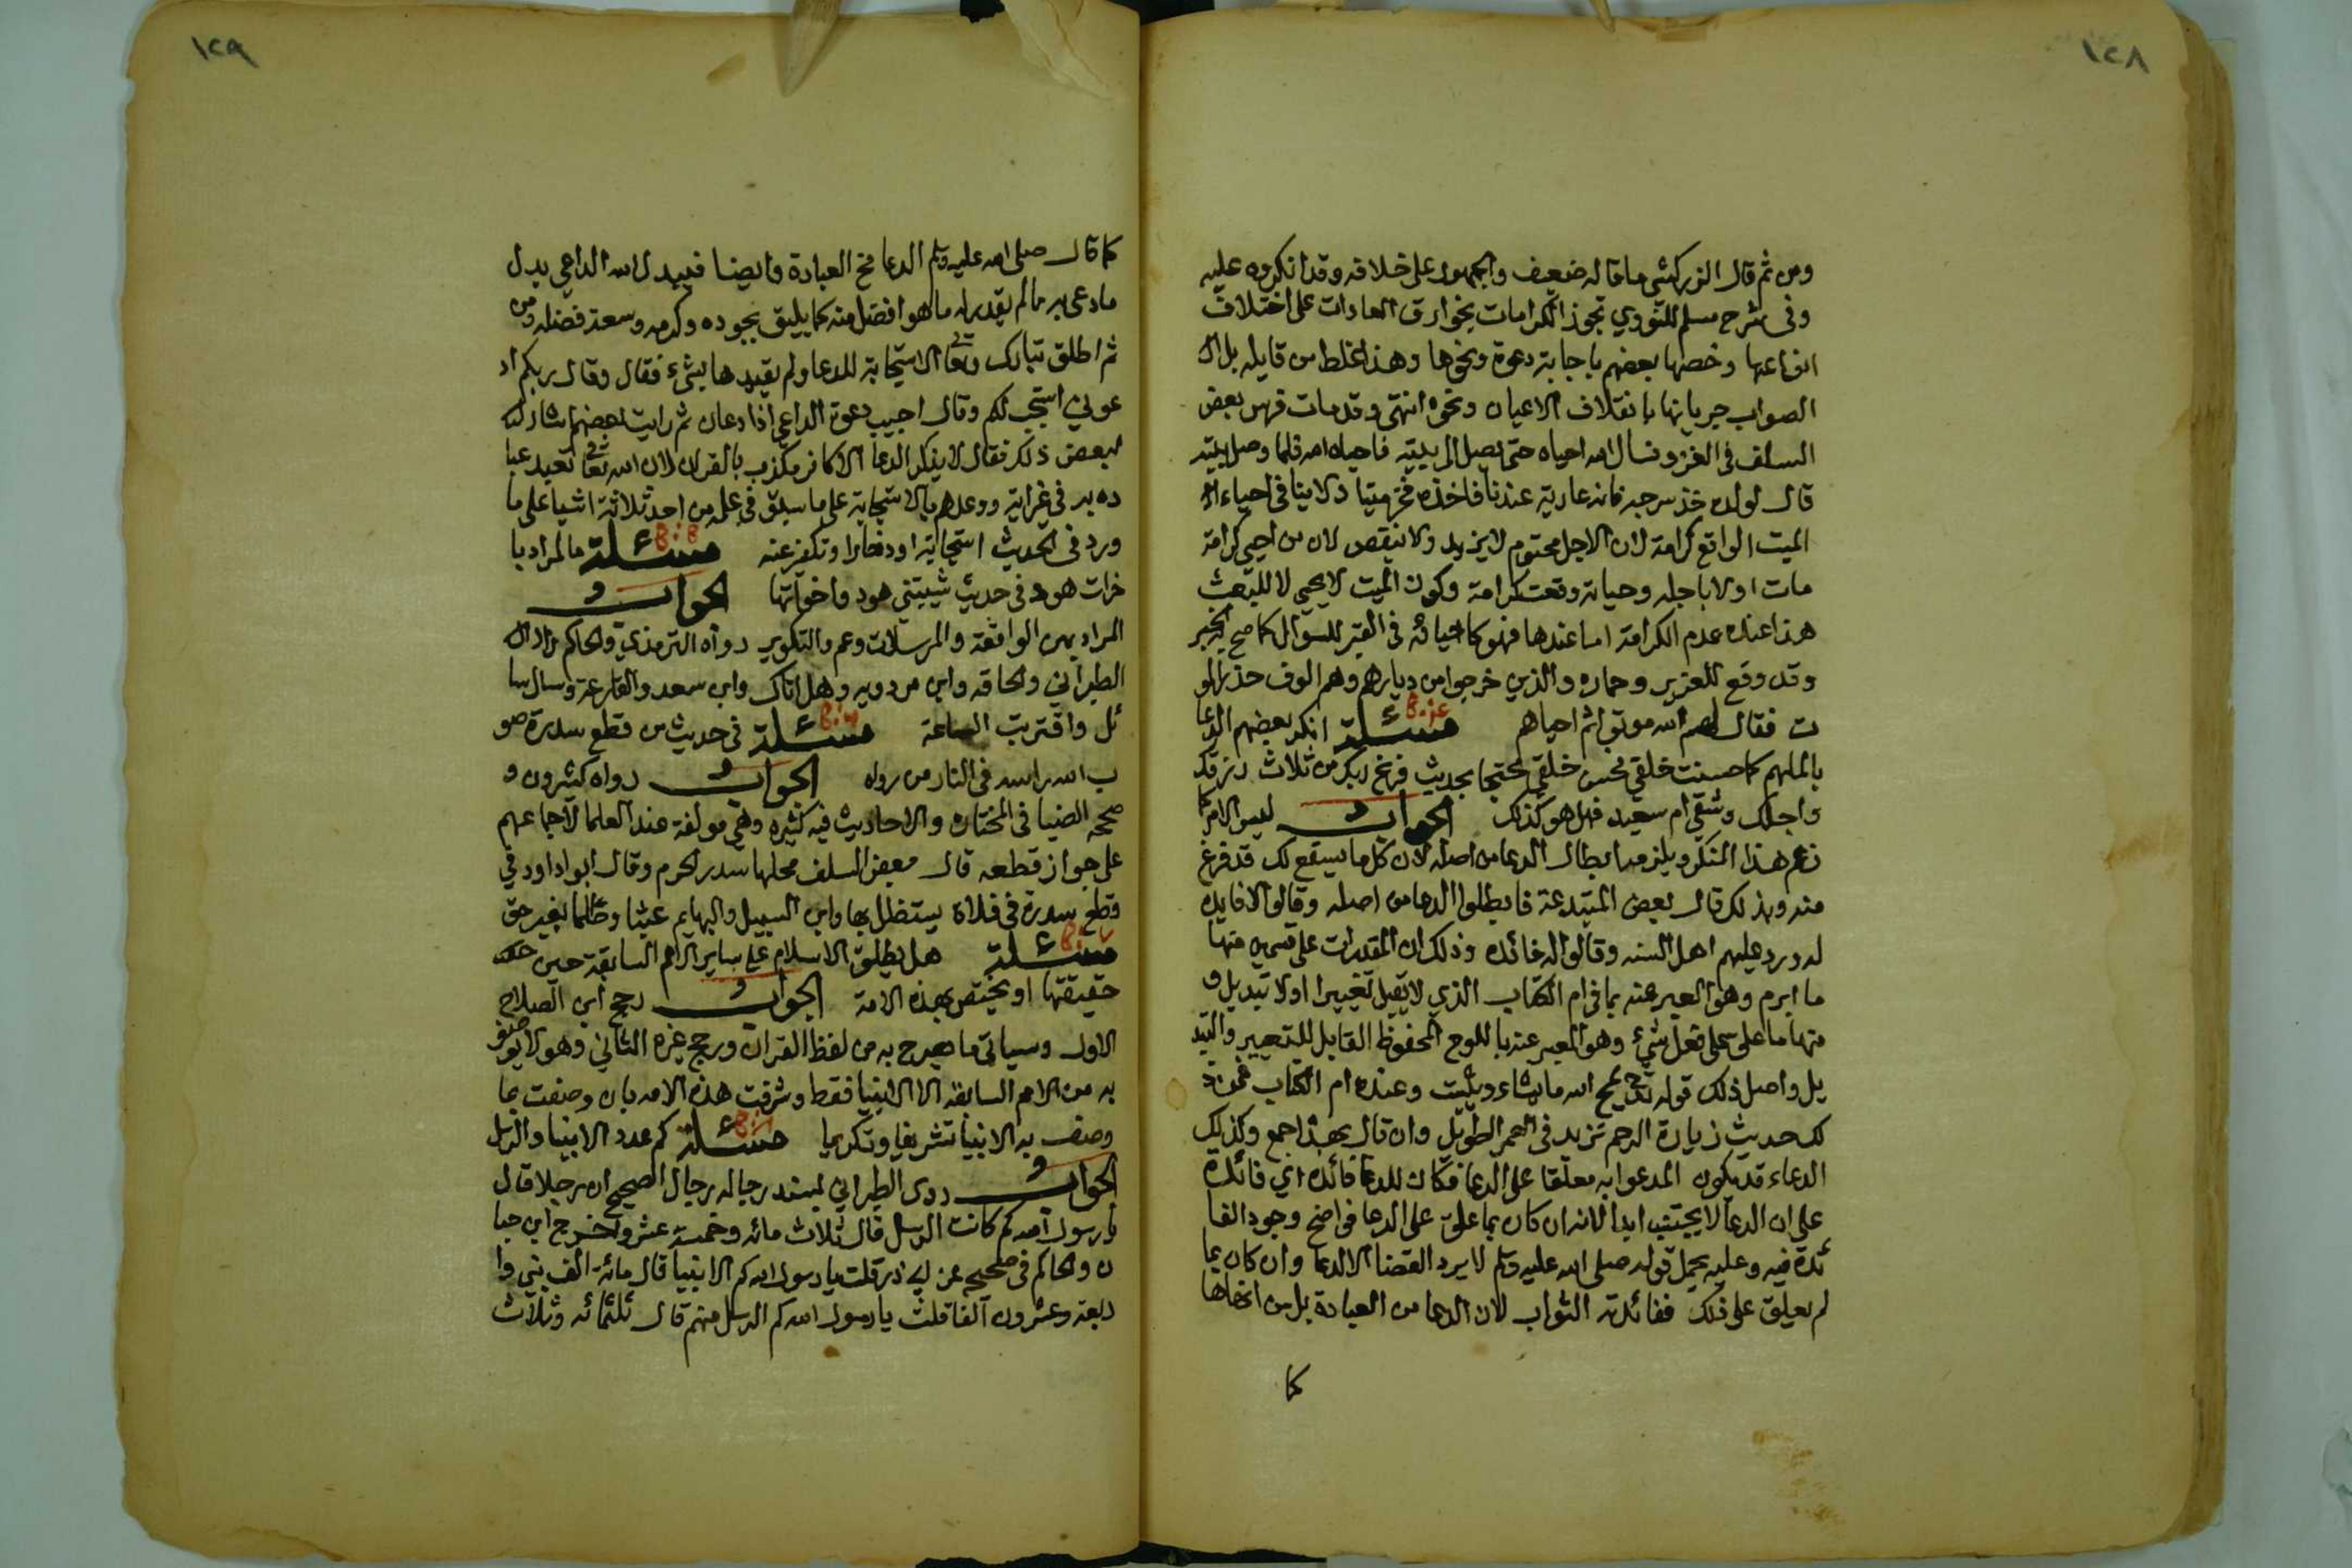 ١٢٨
ومن ثم قال الزركشي ما قاله ضعيف والجمهور على خلافه وقد انكروه عليه
وفى شرح مسلم للنووي تجوز الكرامات بخوارق العادات على اختلاف
انواعها وخصها بعضهم باجابة دعوة ونحوها وهذا غلط من قايله بل ال
الصواب جريانها بانقلاف الاعيان ونحوه انتهى وقد مات فرس بعض
السلف فى الغزو فسال الله احياه حتى يصل الى بيته فاحياه الله فلما وصل بيته
قال لولده خذ سرجه فانه عارية عندنا فاخذه فخر ميتا ولا ينافى احياء
الميت الواقع كرامة لان الاجل محتوم لا يزيد ولا ينقص لان من احيي كرامة
مات اولا باجله وحياته وقعت كرامة وكون الميت لا يحيى الا للبعث
هذا عند عدم الكرامة اما عندها فهو كاحيائه فى القبر للسوال كما صح به الخبر
وقد وقع للعزير وحماره والذين خرجوا من ديارهم وهم الوف حذر المو
ت فقال لهم الله موتوا ثم احياهم مسئلة انكر بعضهم الدعا
باللهم كما حسنت خلقي فحسن خلقي محتجا بحديث فرغ ربكم من ثلاث رزقك
واجلك وشقي ام سعيد فهل هو كذلك الجواب ليس الامر كما
زعم هذا المنكر ويلزمه ابطال الدعا من اصله لان كل ما سيقع لك قد فرغ
منه وبذلك قال بعض المبتدعة فابطلوا الدعا من اصله وقالوا لا فايده
له ورد عليهم اهل السنه وقالوا له فائده وذلك ان المقدرات على قسمين منها
ما ابرم وهو المعبر عنه بما فى ام الكتاب الذي لا يقبل تغييرا ولا تبديل و
منها ما علق على فعل شيء وهو المعبر عنه باللوح المحفوظ القابل للتغيير والتبد
يل واصل ذلك قوله تعالى يمحو الله ما يشاء ويثبت وعنده ام الكتاب فمن ذ
لك حديث زيارة الرحم تزيد فى العمر الطويل وان قال بهذا جمع وكذلك
الدعاء قد يكون المدعوا به معلقا على الدعا فكان للدعا فائده اي فائدة
على ان الدعا لا يجتنب ابدا لانه ان كان بما علق على الدعا فواضح وجود الفا
ئدة فيه وعليه يحمل قوله صلى الله عليه وسلم لا يرد القضا الا الدعا وان كان بما
لم يعلق على ذلك ففائدته الثواب لان الدعا من العبادة بل من انخاها
كما
١٢٩
كما قال صلى الله عليه وسلم الدعا مخ العبادة وايضا فيبدل الله الداعي بدل
ما دعى به مما لم يقدر له ما هو افضل منه كما يليق بجوده وكرمه وسعة فضله ومن
ثم اطلق تبارك وتعالى الاستجابة للدعا ولم يقيدها بشيء فقال وقال ربكم اد
عوني استجب لكم وقال اجيب دعوة الداعي اذا دعان ثم رايت بعضهم اشار
لبعض ذلك فقال لا ينكر الدعا الا كافر مكذب بالقران لان الله تعالى تعبد عبا
ده به في غير اية ووعدهم بالاستجابة على ما سبق في علمه من احد ثلاثة اشيا على ما
ورد فى الحديث استجابة او ادخار او تكفير عنه مسئلة ما المراد با
خوات هود فى حديث شيبتني هود واخواتها الجواب
المراد بهن الواقعة والمرسلات وعم والتكوير رواه الترمذي والحاكم زاد
الطبراني والحاقه وابن مردويه وهل اتاك وابن سعد والقارعة وسال سا
ئل واقتربت الساعة مسئلة فى حديث من قطع سدرة صو
ب الله راسه فى النار من رواه الجواب رواه كثيرون و
صححه الضيا فى المختاره والاحاديث فيه كثيره وهي مولفة عند العلما لاجماعهم
على جواز قطعه قال بعض السلف محلها سدر الحرم وقال ابوا داود في
قطع سدرة فى فلاة يستظل بها وابن السبيل والبهايم عبثا وظلما بغير حق
مسئلة هل يطلق الاسلام على ساير الامم السابقة حين
حقيقتها او يختص بهذه الامة الجواب رجح ابن الصلاح
الاول وسياتي ما يصرح به من لفظ القران ورجح غيره الثاني وهو لا يوصف
به من الامم السابقه الا الانبيا فقط وشرفت هذه الامه بان وصفت بما
وصف به الانبيا تشريفا وتكريما مسئلة كم عدد الانبيا والرسل
الجواب روى الطبراني بسند رجاله رجال الصحيح ان رجلا قال
يا رسول الله كم كانت الرسل قال ثلاث مائه وخمسة عشر واخرج ابن حبا
ن والحاكم فى صحيحه عن ابي ذر قلت يا رسول الله كم الانبيا قال مائة الف نبي وا
ربعة وعشرون الفا قلت يا رسول الله كم الرسل منهم قال ثلثمائه وثلاث